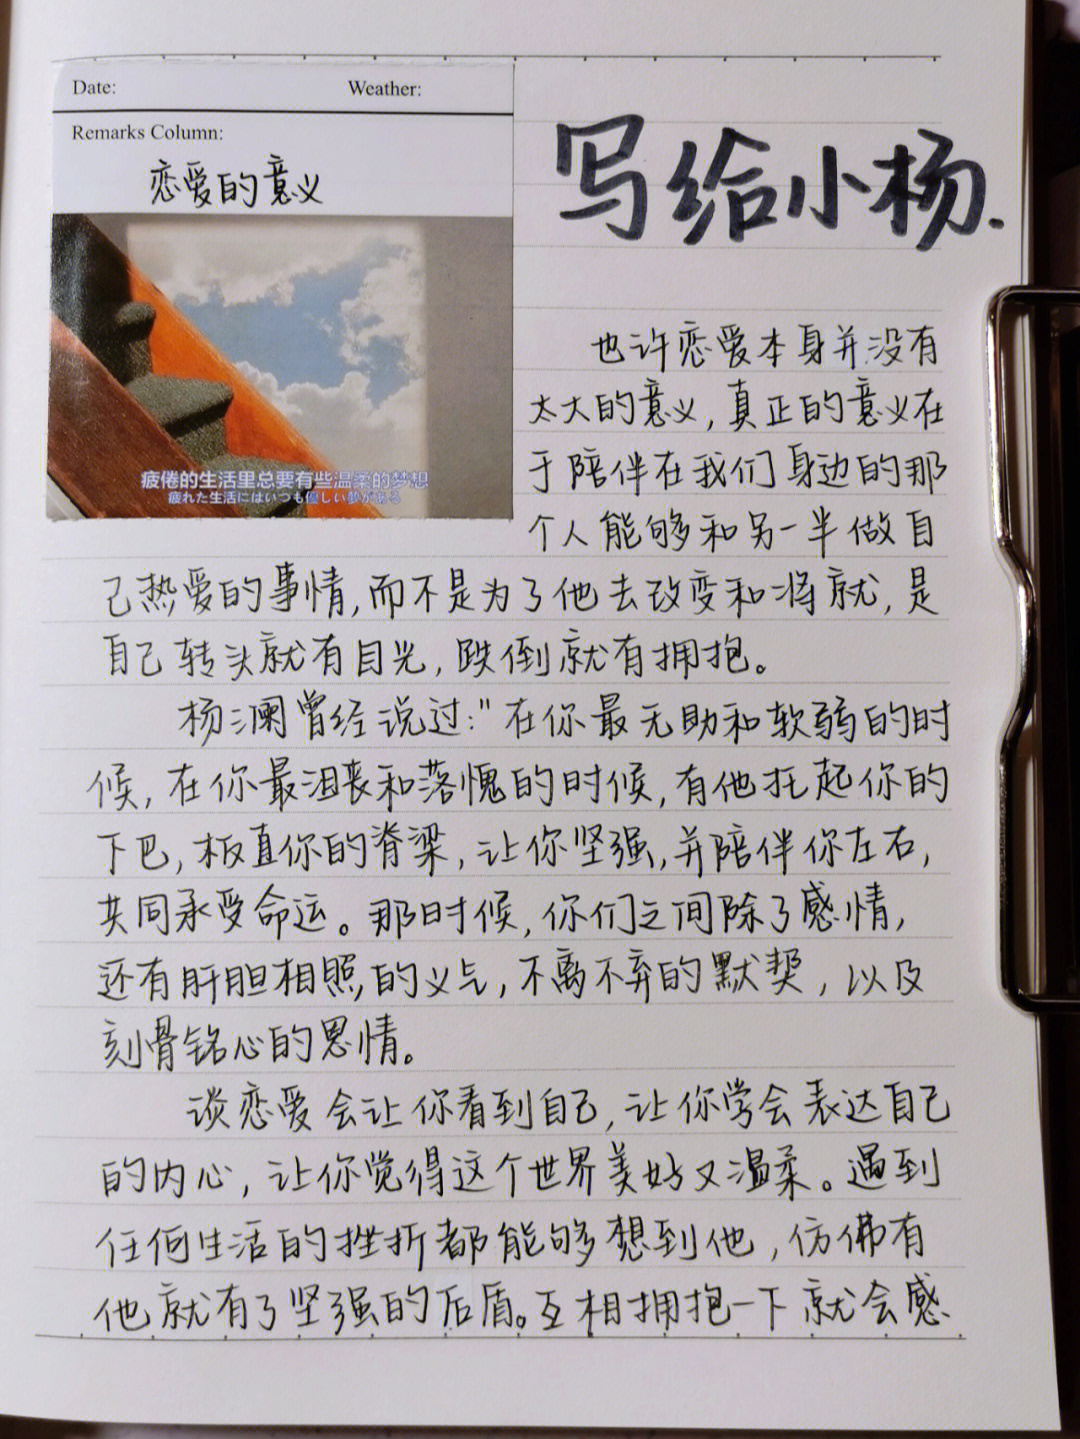 Date: Weather:
Remarks Column:
恋爱的意义
疲倦的生活里总要有些温柔的梦想
疲れた生活にはいつも優しい夢がある
写给小杨.
也许恋爱本身并没有
太大的意义,真正的意义在
于陪伴在我们身边的那
个人能够和另一半做自
己热爱的事情,而不是为了他去改变和将就,是
自己转头就有目光,跌倒就有拥抱。
杨澜曾经说过:"在你最无助和软弱的时
候,在你最沮丧和落愧的时候,有他托起你的
下巴,板直你的脊梁,让你坚强,并陪伴你左右,
共同承受命运。那时候,你们之间除了感情,
还有肝胆相照的义气,不离不弃的默契,以及
刻骨铭心的恩情。
谈恋爱会让你看到自己,让你学会表达自己
的内心,让你觉得这个世界美好又温柔。遇到
任何生活的挫折都能够想到他,仿佛有
他就有了坚强的后盾。互相拥抱一下就会感